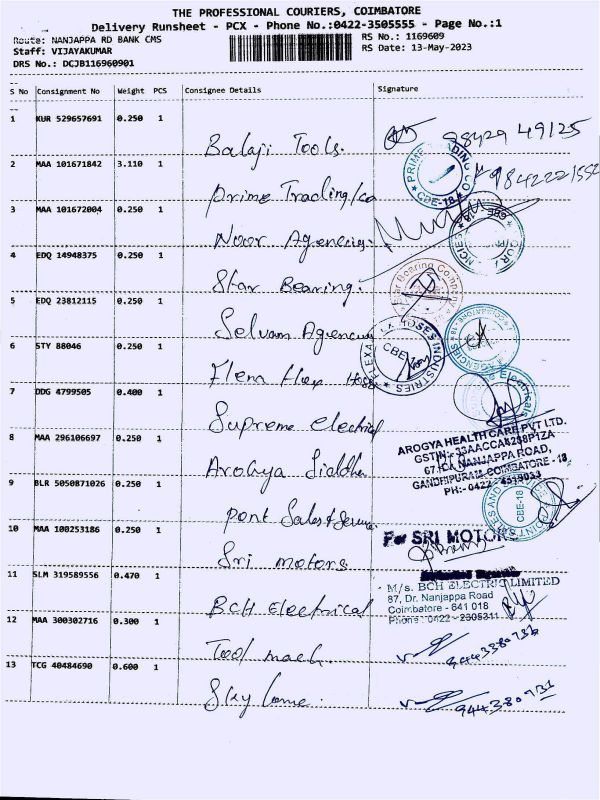 THE PROFESSIONAL COURIERS, COIMBATORE
Delivery Runsheet - PCX - Phone No.:0422-3505555 - Page No.:1
Route: NANJAPPA RD BANK CMS
RS No.: 1169609
Staff: VIJAYAKUMAR
RS Date: 13-May-2023
DRS No.: DCJB116960901
S No Consignment No Weight PCS Consignee Details Signature
1 KUR 529657691 0.250 1
Balaji Tools. 98429 49125
2 MAA 101671842 3.110 1
Prime Trading/co 9842221552
PRIME TRADING CO
CBE-18
3 MAA 101672004 0.250 1
Noor Agencies
4 EDQ 14948375 0.250 1
Star Bearing.
Star Bearing Company
5 EDQ 23812115 0.250 1
Selvam Agencies
6 STY 88046 0.250 1
Flexa Hose
HOSES INDUSTRIES
CBE
7 DDG 4799505 0.400 1
Supreme Electrical
8 MAA 296106697 0.250 1
Arogya Siddha
AROGYA HEALTH CARE PVT LTD.
67, NANJAPPA ROAD,
GANDHIPURAM, COIMBATORE - 18,
9 BLR 5050871026 0.250 1
Point Sales & Service
CBE-18
10 MAA 100253186 0.250 1
Sri motors
For SRI MOTORS
11 SLM 319589556 0.470 1
BCH Electrical
M/s. BCH ELECTRIC LIMITED
87, Dr. Nanjappa Road
Coimbatore - 641 018
Phone: 0422 - 2305311
12 MAA 300302716 0.300 1
Tool mach.
9443380731
13 TCG 40484690 0.600 1
Sky
944380731